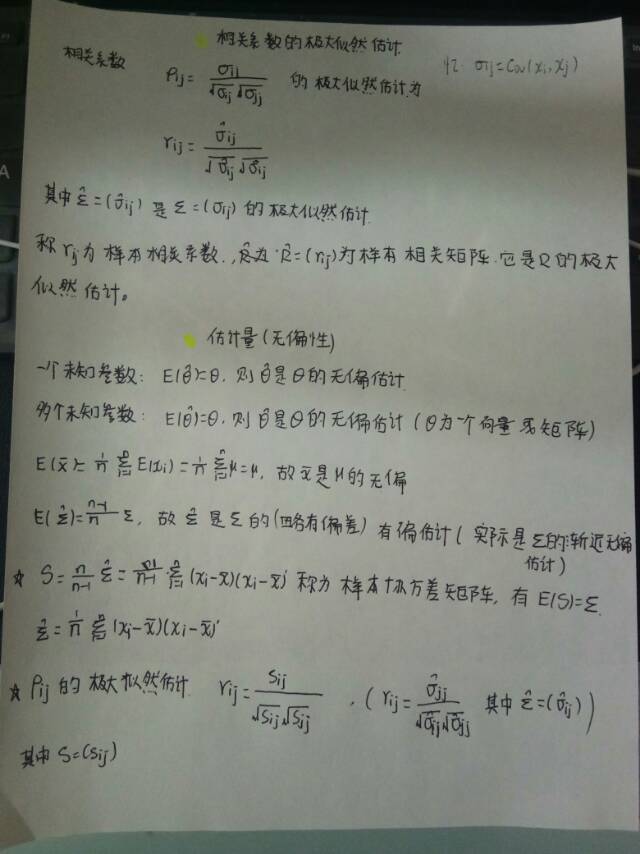 相关系数的极大似然估计
相关系数 ρij = σij / √σij √σjj 的极大似然估计为 忆: σij = Cov(xi, xj)
rij = σ̂ij / √σ̂ij √σ̂ij
其中 Σ̂ = (σ̂ij) 是 Σ = (σij) 的极大似然估计
称 rij 为样本相关系数, R̂为 R̂ = (rij) 为样本相关矩阵. 它是 R 的极大
似然估计。
估计量 (无偏性)
一个未知参数: E(θ̂)=θ, 则 θ̂是θ的无偏估计
多个未知参数: E(θ̂)=θ, 则 θ̂是θ的无偏估计 (θ为一个向量或矩阵)
E(x̄) = 1/n Σ E(xi) = 1/n Σ μ = μ, 故 x̄是μ的无偏
E(Σ̂) = n-1/n Σ, 故 Σ̂ 是 Σ 的 (略有偏差) 有偏估计 ( 实际是Σ的渐近无偏
估计)
☆ S = n/n-1 Σ̂ = 1/n-1 Σ (xi-x̄)(xi-x̄)' 称为样本协方差矩阵, 有 E(S)=Σ
Σ̂ = 1/n Σ (xi-x̄)(xi-x̄)'
☆ ρij 的极大似然估计 rij = Sij / √Sij √Sij , ( rij = σ̂jj / √σ̂ij √σ̂jj 其中 Σ̂ = (σ̂ij) )
其中 S = (Sij)